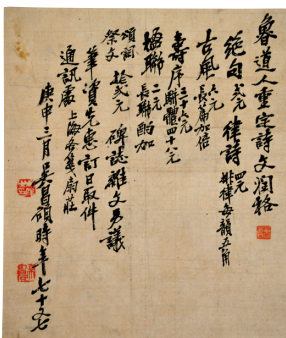 魯道人重定詩文潤格
絕句 弍元 律詩 四元 排律每韻五角
古風 六元 長篇加倍
壽序 三十六元 駢體四十八元
楹聯 二元 長聯酌加
頌詞 祭文 拾弍元 碑誌雜文另議
筆資先惠訂日取件
通訊處 上海 扇莊
庚申三月吳昌碩時年七十又七